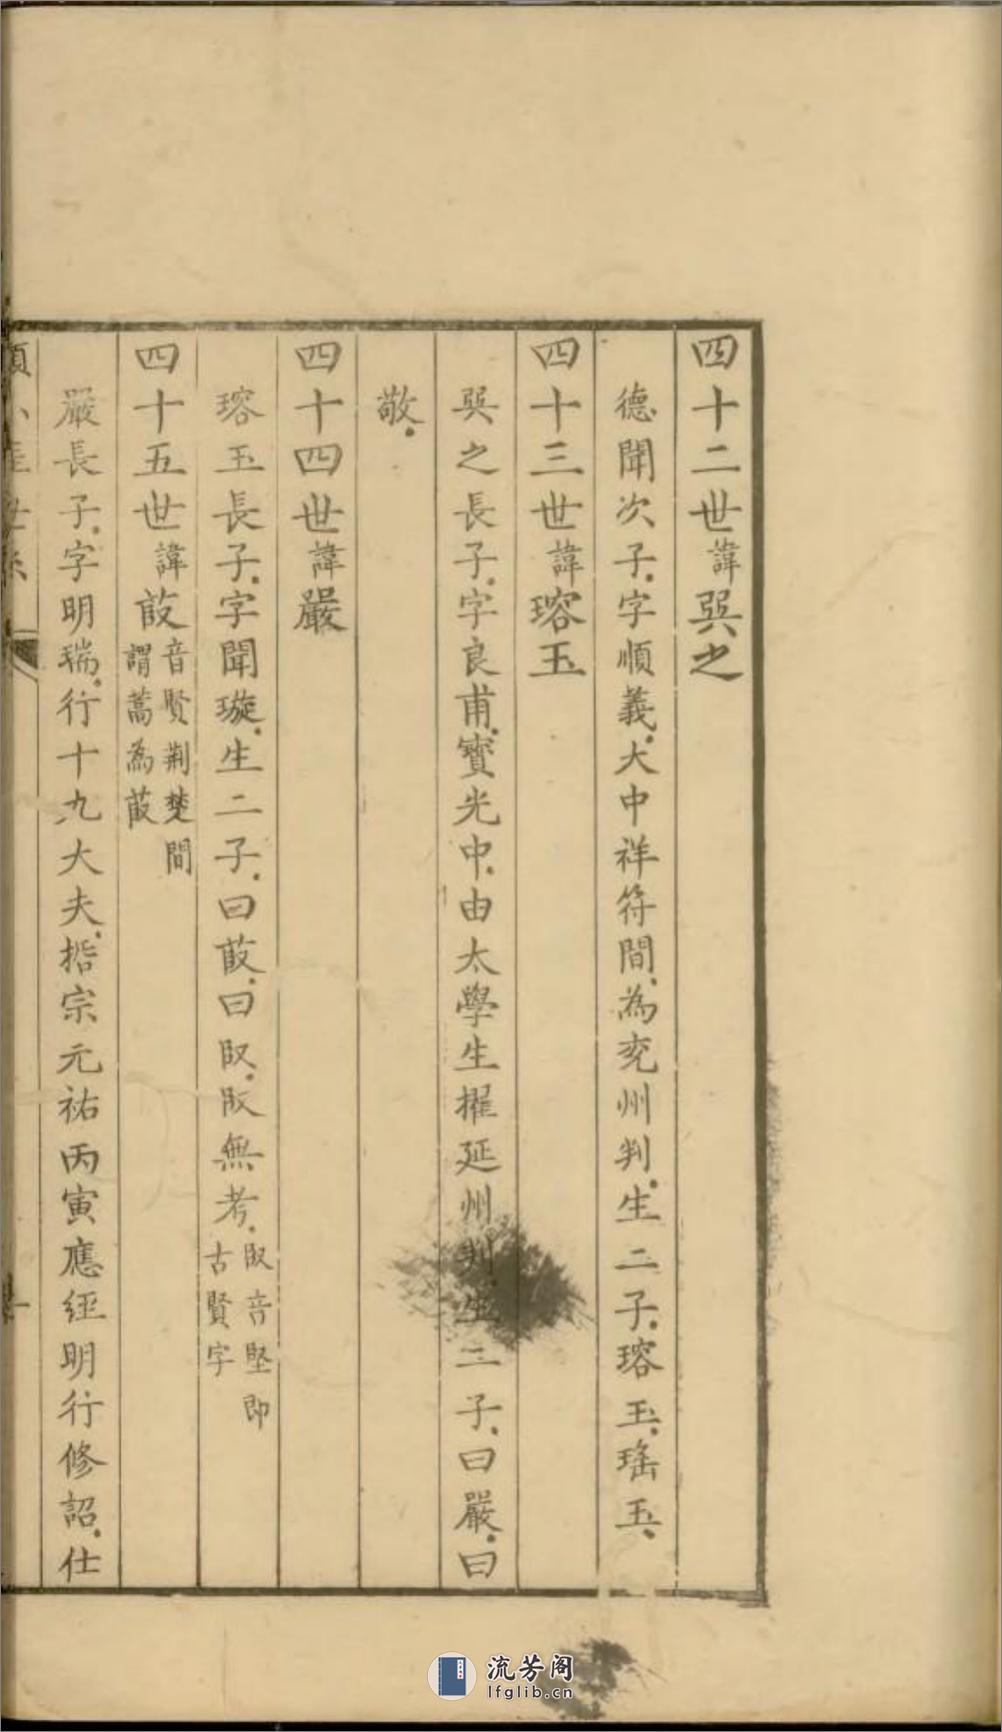 四十二世諱巺之
德聞次子。字順義。大中祥符間。為兖州判。生二子。瑢玉。瑤玉、
四十三世諱瑢玉
巺之長子。字良甫。寶光中。由太學生擢延州判。生二子。曰嚴。曰
敬。
四十四世諱嚴
瑢玉長子。字聞璇。生二子。曰菣。曰臤。臤無考。臤音堅即
古賢字
四十五世諱菣音賢荆楚間
謂蒿為菣
嚴長子。字明瑞。行十九大夫。哲宗元祐丙寅應經明行修詔。仕
世系
流芳阁
lfglib.cn